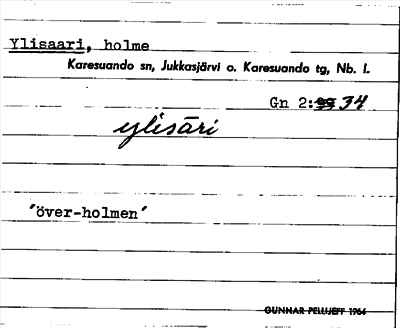 Ylisaari, holme
Karesuando sn, Jukkasjärvi o. Karesuando tg, Nb. l.
Gn 2:99 34
ylisāri
´över-holmen´
GUNNAR PELLIJEFF 1964